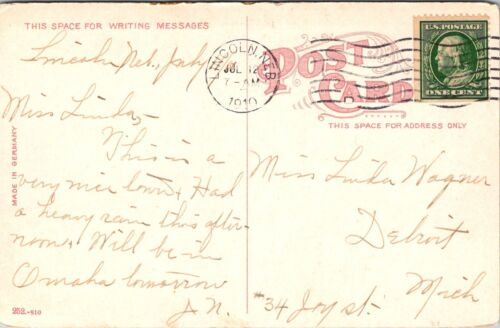 THIS SPACE FOR WRITING MESSAGES
Lincoln Neb, July
Miss Linda,
This is a
very nice town, Had
a heavy rain this after-
noon, Will be in
Omaha tomorrow
J. N.
MADE IN GERMANY
252.-S10
LINCOLN, NEB.
JUL 12
7-AM
1910
POST
CARD
U.S. POSTAGE
ONE CENT
THIS SPACE FOR ADDRESS ONLY
Miss Linda Wagner
Detroit
#34 Joy st. Mich